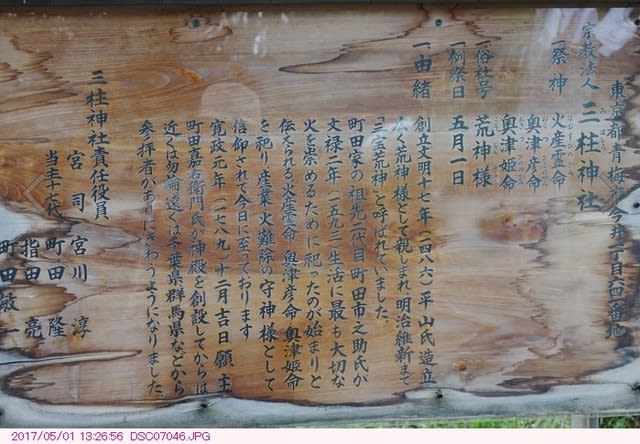 東京都青梅市今井一丁目六四番地
宗教法人 三柱神社
一祭神 火産霊命
奥津彦命
奥津姫命
一俗社号 荒神様
一例祭日 五月一日
一由緒
創立文明十七年(一四八六)平山氏造立
広く荒神様として親しまれ明治維新まで
「三宝荒神」と呼ばれていました。
町田家の祖先二代目町田市之助氏が
文禄二年(一五九三)生活に最も大切な
火を崇めるために祀ったのが始まりと
伝えられる火産霊命 奥津彦命 奥津姫命
を祀り産業、火難除の守神様として
信仰されて今日に至っております
寛政元年(一七八九)十二月吉日願主
町田嘉右衛門氏が神殿を創設してからは
近くは勿論遠くは千葉県群馬県などから
参拝者がありにぎわうようになりました
三柱神社責任役員
宮司 宮川 淳
当主十七代 町田 隆
指田 亮
町田敏一
2017/05/01 13:26:56 DSC07046.JPG